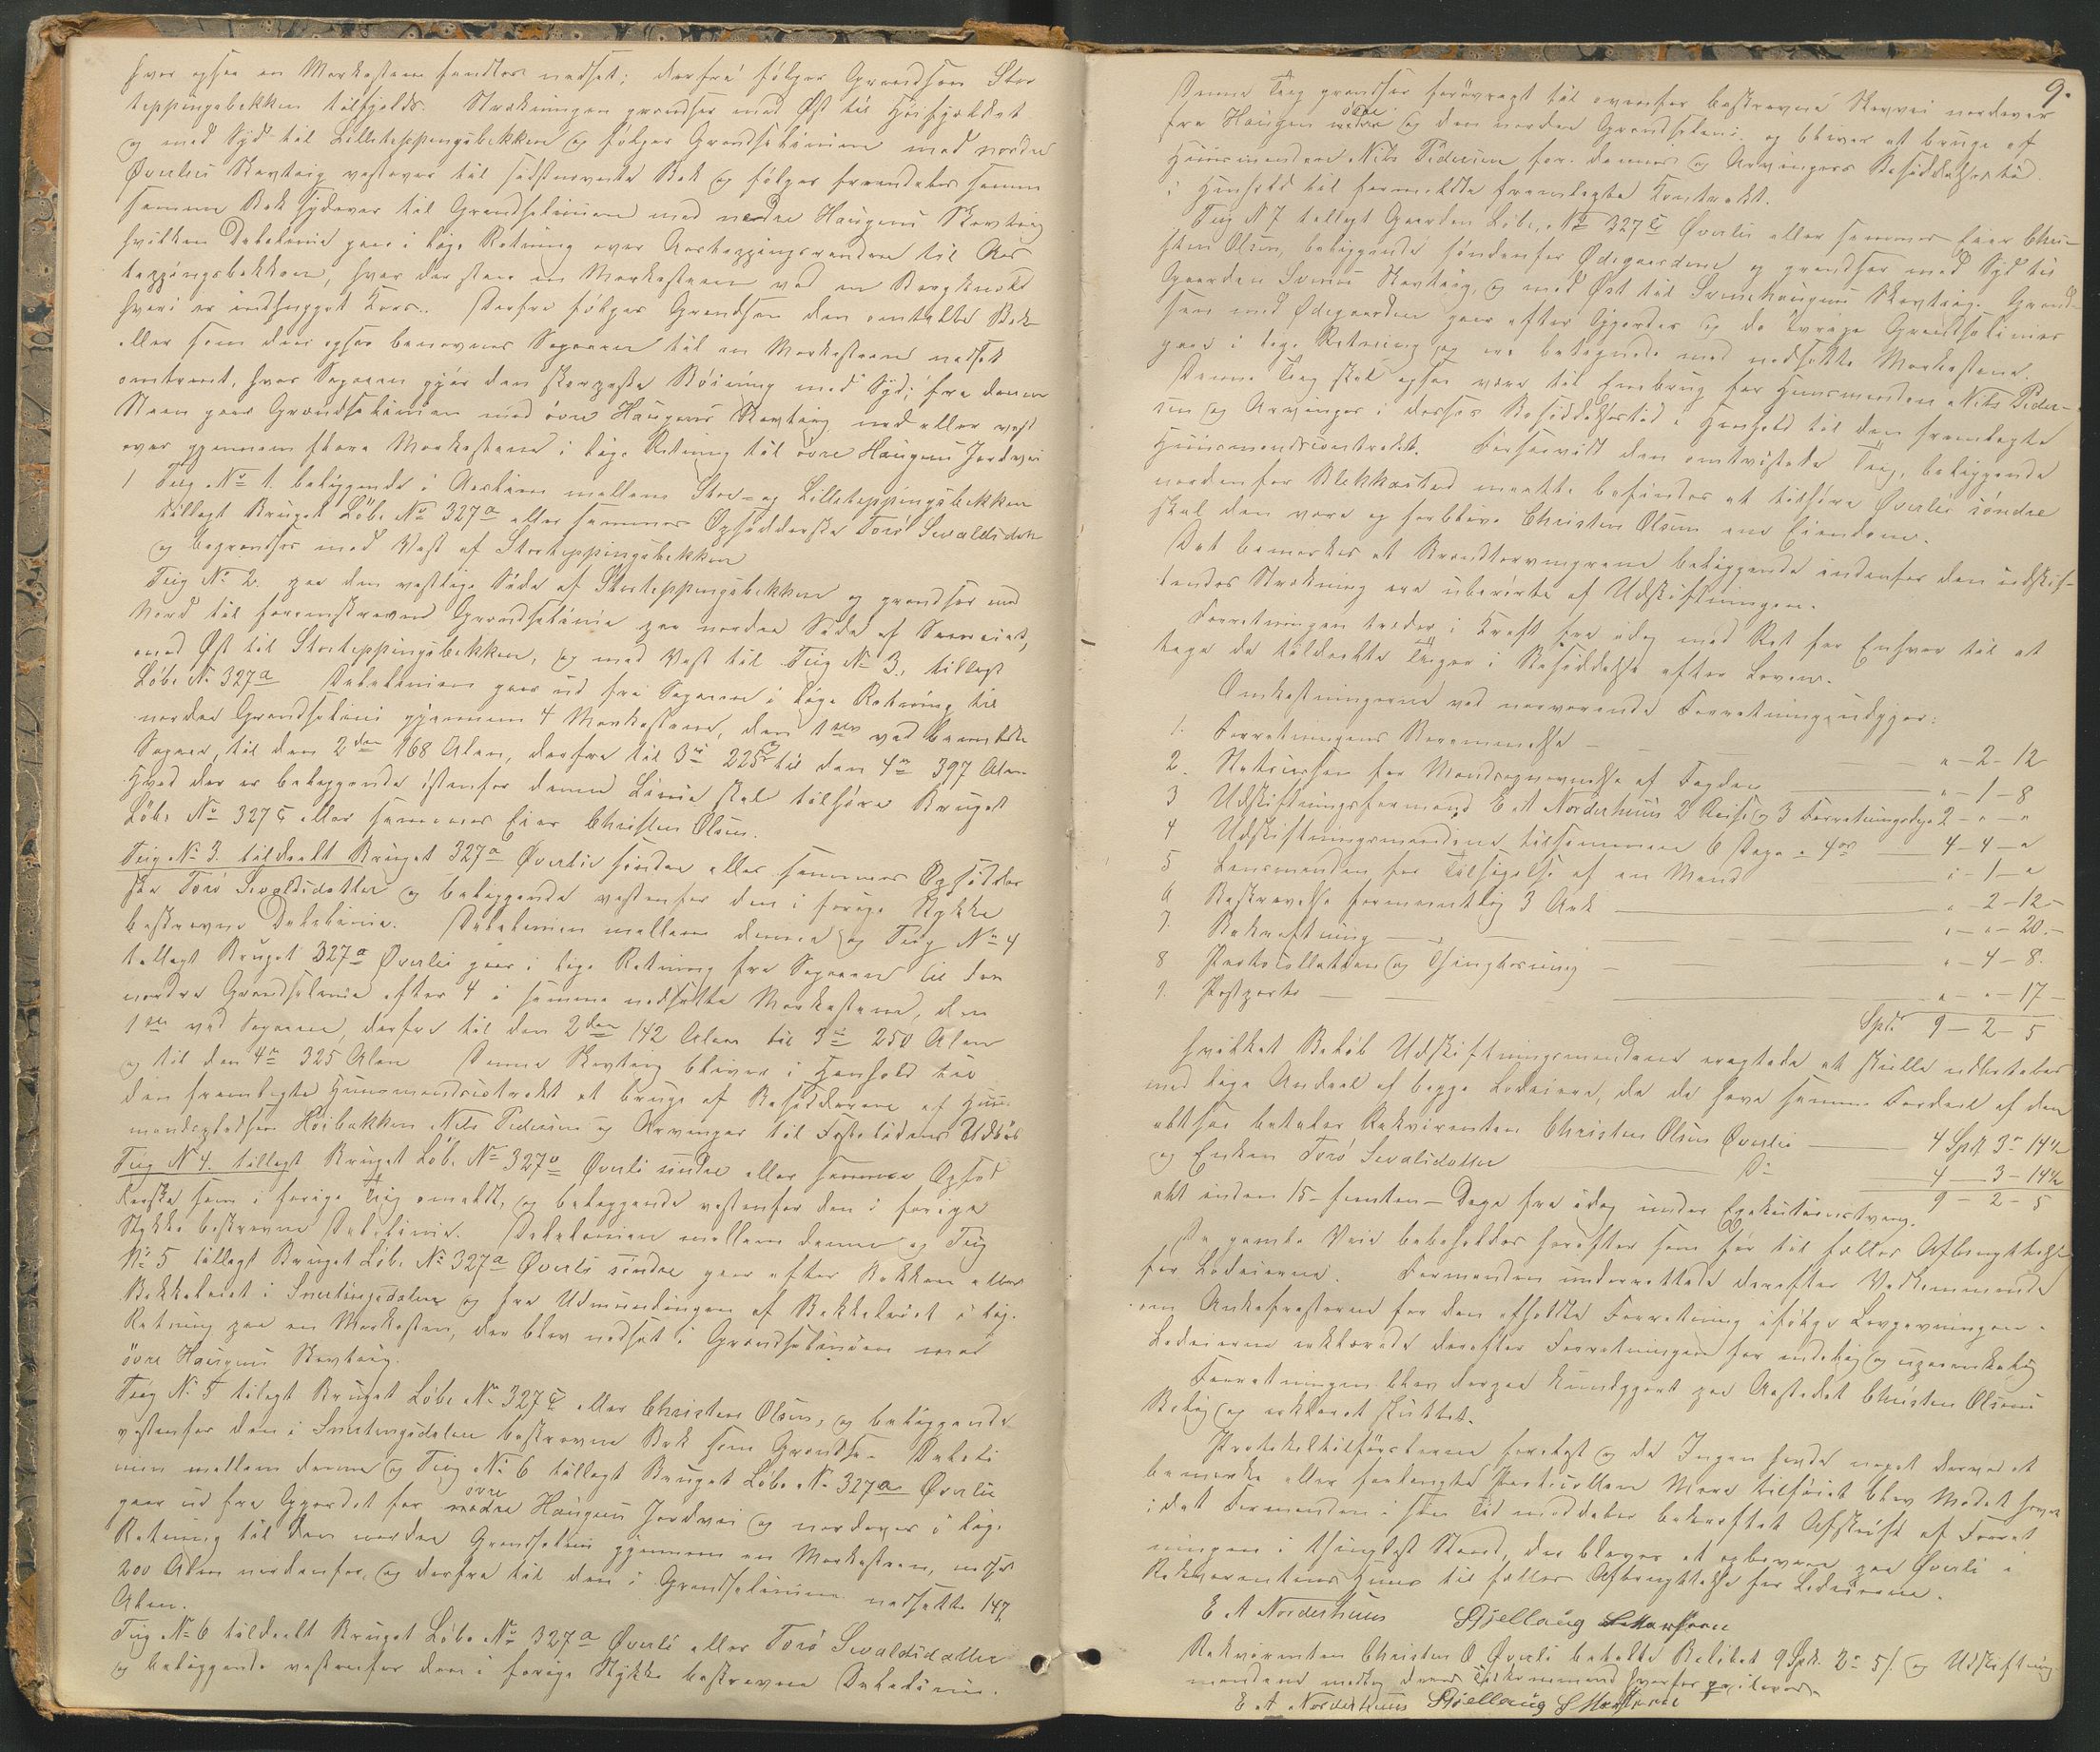 hvor ogsaa en Markesteen fandtes nedsat; derfra følger Grændsen Stor
teppingsbekken tilfjelds. Strækningen grændser mod Øst til Høifjeldet
og mod Syd til Lilleteppingsbekken og følger Grændselinien med nordre
Øverlies Skovteig vestover til sidstnævnte Bæk og følger fremdeles
samme Bæk sydover til Grændselinien med nedre Haugens Skovteig
hvilken Delelinie gaar i lige Retning over til Aas
teppingsbekken, hvor der staar en Markesteen ved en Bergknold
hvori er indhugget Kors. Derfra følger Grændsen den omtalte Bæk
eller som den ogsaa benævnes Sagaaen til en Markesteen nedsat
omtrent, hvor Sagaaen gjør den skarpeste Bøining mod Syd; fra denne
Steen gaar Grændselinien med øvre Haugens Skovteig ned eller vest
over gjennem flere Markestene i lige Retning til øvre Haugens Jordvei
1 Teig No 1. beliggende i Aaslien mellem Stor- og Lilleteppingsbekken
tillagt Bruget Løb. No 327a eller sammes Opsidderske Torø Sevaldsdatter
og begrændses mod Vest af Storteppingsbekken
Teig No 2. paa den vestlige Side af Storteppingsbekken og grændser mod
Nord til forommskrevne Grændselinie paa nordre Side af
mod Øst til Storteppingsbekken, og mod Vest til Teig No 3, tillagt
Løb. No 327a Delelinien gaar ud fra Sagaaen i lige Retning til
nordre Grændselinie gjennem 4 Markestene, den 1ste ved bemeldte
Sagaae, til den 2den 168 Alen, derfra til 3die 225 til den 4de 397 Alen
Hvad der er beliggende østenfor denne Linie skal tilhøre Bruget
Løb. No 327c eller sammes Eier Christen Olsen.
Teig No 3. tildeelt Bruget 327a Øverlie søndre eller sammes Opsidder
ske Torø Sevaldsdatter og beliggende vestenfor den i forrige Stykke
beskrevne Delelinie. Delelinien mellem denne og Teig No 4
tillagt Bruget 327a Øverlie gaar i lige Retning fra Sagaaen til den
nordre Grændselinie efter 4 i samme nedsatte Markestene, den
1ste ved Sagaaen, derfra til den 2den 142 Alen til 3die 250 Alen
og til den 4de 325 Alen Denne Skovteig bliver i Henhold til
den fremlagte Huusmandscontrakt at bruge af Besidderen af Huus
mandspladsen Høibakken Nils Pedersen og Arvinger til Festetidens Udløb
Teig No 4. tillagt Bruget Løb. No 327a Øverli søndre eller samme Opsid
derske som i forrige Teig omeldt, og beliggende vestenfor den i forrige
Stykke beskrevne Delelinie. Delelinien mellem denne og Teig
No 5 tillagt Bruget Løb. No 327a Øverli søndre gaar efter Bekken eller
Bekkeleiet i Snertingsdalen og fra Udmundingen af Bekkeleiet i lige
Retning paa en Markesten, der blev nedsat i Grændselinien med
øvre Haugens Skovteig.
Teig No 5 tilegt Bruget Løb. No 327c eller Christen Olsen, og beliggende
vestenfor den i Snertingsdalen beskrevne Bæk som Grændse. Deleli
nien mellem denne og Teig No 6 tillagt Bruget Løb. No 327a Øverlie
gaar ud fra Gjerdet for øvre Haugens Jordvei og nordover i lige
Retning til den nordre Grændselinie gjennem en Markesteen, nedsat
200 Alen nordenfor, og derfra til den i Grændselinien nedsatte 147
Alen.
Teig No 6 tildeelt Bruget Løb. No 327a Øverli eller Torø Sevaldsdatter
og beliggende vestenfor den i forrige Stykke beskrevne Delelinie.
9.
Denne Teig grændser forøvrigt til ovenfor beskrevne Skovvei nordover
fra Haugen øvre og den nordre Grændselinie, og bliver at bruge af
Huusmanden Nils Pedersen for dennes og Arvingers Besiddelsestid
i Henhold til formeldte fremlagte Kontrakt.
Teig N 7 tillagt Gaarden Løb. No 327c Øverlie eller sammes Eier Chri-
sten Olsen, beliggende søndenfor Ødegaardene og grændser mod Syd til
Gaarden Svines Skovteig, og mod Øst til Svinehaugens Skovteig. Grænd
sen med Ødegaarden gaar efter Gjerdet og de øvrige Grændselinier
gaar i lige Retning og ere betegnede med nedsatte Markestene.
Denne Teig skal ogsaa være til Enebrug for Huusmanden Nils Peder-
sen og Arvinger i deres Besiddelsestid i Henhold til den fremlagte
Huusmandscontrakt. Forsaavidt den omtvistede Teig, beliggende
nordenfor Blekkastad maatte befindes at tilhøre Øverlie søndre
skal den være og forblive Christen Olsens ene Eiendom.
Det bemærkes at Brændtorvmyrene beliggende indenfor den udskif-
tendes Strækning ere uberørte af Udskiftningen.
Forretningen træder i Kraft fra idag med Ret for Enhver til at
tage de tildeelte Teiger i Besiddelse efter Loven.
Omkostningerne ved nærværende Forretning udgjør:
1. Forretningens Berammelse — " - 2 - 12
2. Skrivelsen for Mandsopnævnelse af Fogden — " - 1 - 8
3 Udskiftningsformand E A Norderhuus 2 Reise og 3 Forretningsdage 2 - " - "
4 Udskiftningsmændene tilsammen 6 Dage a 4 ort — 4 - 4 - "
5 Lensmanden for Tilsigelse af en Mand — " - 1 - "
6 Beskrivelse formentlig 3 Ark — " - 2 - 12 -
7. Bekræftning — " - " - 20. -
8 Protocollation og Thinglæsning — " - 4 - 8.
9. Postporto — " - " - 17 -
Spd. 9 - 2 - 5
hvilket Beløb Udskiftningsmændene eragtede at skulle udbetales
med lige Andeel af begge Lodeiere, da de have samme Fordeel af den
altsaa betaler Rekvirenten Christen Olsen Øverlie — 4 Spd 3 - 14½
og Enken Torø Sevalsdatter — Do 4 - 3 - 14½
9 - 2 - 5
alt inden 15 - femten - Dage fra idag under Exekutionstvang.
De gamle Veie beholdes herefter som før til fælles Afbenyttelse
for Lodeierne. Formanden underrettede derefter Vedkommende
om Ankefristerne for den afholdte Forretning ifølge Lovgivningen.
Lodeierne erklærede derefter Forretningen for endelig og upaaankelig
Forretningen blev derpaa kundgjort paa Aastedet Christen Olsens
Bolig og erklæret sluttet.
Protokoltilførslerne forelagt og da Ingen havde noget derved at
bemærke eller forlangte Protocollen Mere tilføiet blev Mødet hævet
idet Formanden i sin Tid meddeler bekræftet Afskrift af Forret
ningen i thinglæst Stand, der bliver at opbevare paa Øverli i
Rekvirentens Huus til fælles Afbenyttelse for Lodeierne.
E A Norderhuus
Rekvirenten Christen O Øverli betalte Beløbet 9 Spd. 2 - 5 s. og Udskiftnings
mændene modtog deres Tilkommende hvorfor qvitteres.
E. A. Norderhuus